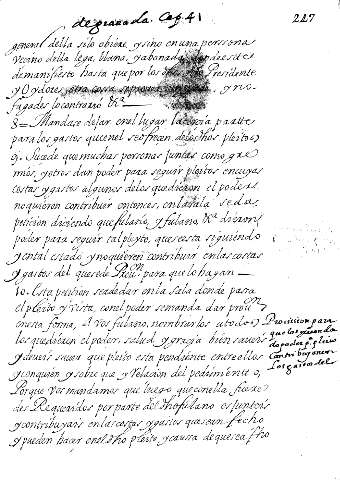 de granada Cap 41
227
general della si lo obiere, y sino en una perssona
vecino della lega, llana, y abonada
de manifiesto hasta que por los Presidente
y Oydores otra cossa
fagades lo contrario &ca
8 = Mandase dejar en el lugar la tercia parte
para los gastos que en el se ofrecen de los dhos pleitos
9. Sucede que muchas personas juntas como gre
mios, y otros dan poder para seguir pleitos en cuyas
costas y gastos algunos de los que dieron el poder
no quieren contribuir entonces, en la sala se da
petición diciendo que fulano, y fulano, &ca dieron
poder para seguir tal pleyto, que se esta siguiendo
y en tal estado, y no quieren contribuir en las costas
y gastos del que se de Prouon para que lo hagan
10. Esta petición se a de dar en la sala donde passa
el pleito y vista, con el poder se manda dar prouon
en esta forma, A vos fulano, nombrarlos a todos
los que dieron el poder, salud y gracia bien saueis
y deueis sauer que pleito esta pendiente entre ellos
y con quien y sobre que y relacion del pedimiento
Porque vos mandamos que luego que con ella fuere
des Requeridos por parte del dho fulano os junteis
y contribuyais en las costas y gastos que se an fecho
y pueden hacer en el dho pleito, y caussa de que se a fho
Provision para
que los que an da
do poder a pleito
contribuyan en
los gastos del